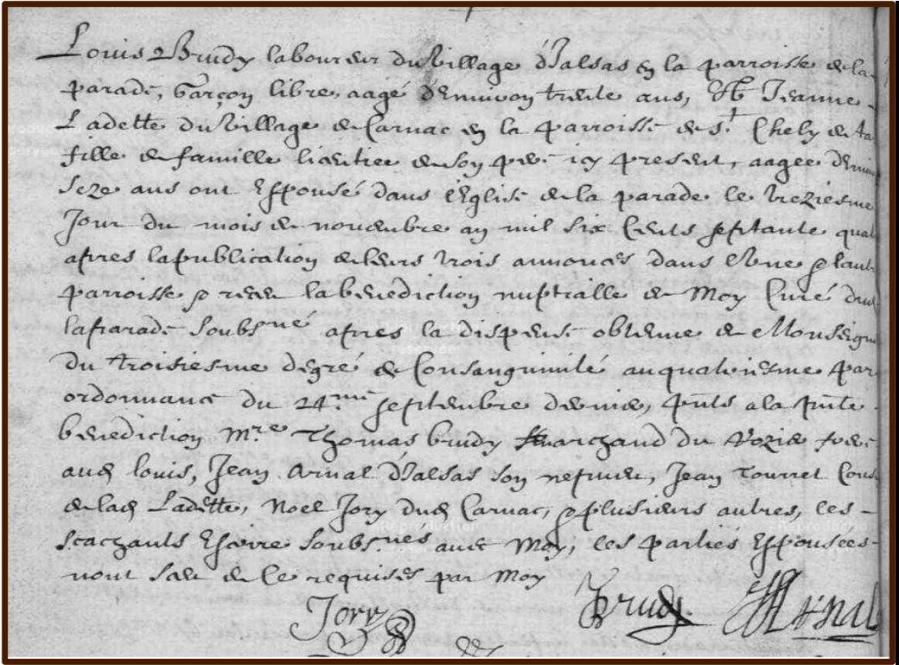 Louis Brudy laboureur du village d'Jalsas en la parroisse de la
parade, Garçon libre, aagé d'environ trente ans, Et Jeanne
Ladette du village de Carnac en la parroisse de st Chely de Ta
fille de famille licentiee de son pere icy present, aagee d'envi
seze ans ont Espousé dans l'Eglise de la parade le treziesme
Jour du mois de novembre an mil six Cents septante quat
apres la publication de leurs trois annonces dans l'Une & l'aut
parroisse & receu la benediction nuptialle de Moy Curé dud
laparade soubsné apres la dispense obtenue de Monseign
du troisiesme degré de Consanguinité au quatriesme par
ordonnance du 24me septembre dernier, pnts a la pnte
benediction Mre Thomas brudy Marchand du Rozier frere
aud louis, Jean Arnal d'Jalsas son nepveu, Jean Tourret Cous
de lad Ladette, Noel Jory dud Carnac, & plusieurs autres, les
scachants Escrire soubsnes avec Moy, les parties Espousées
n'ont sceu de ce requises par Moy
Jory Brudy Arnal